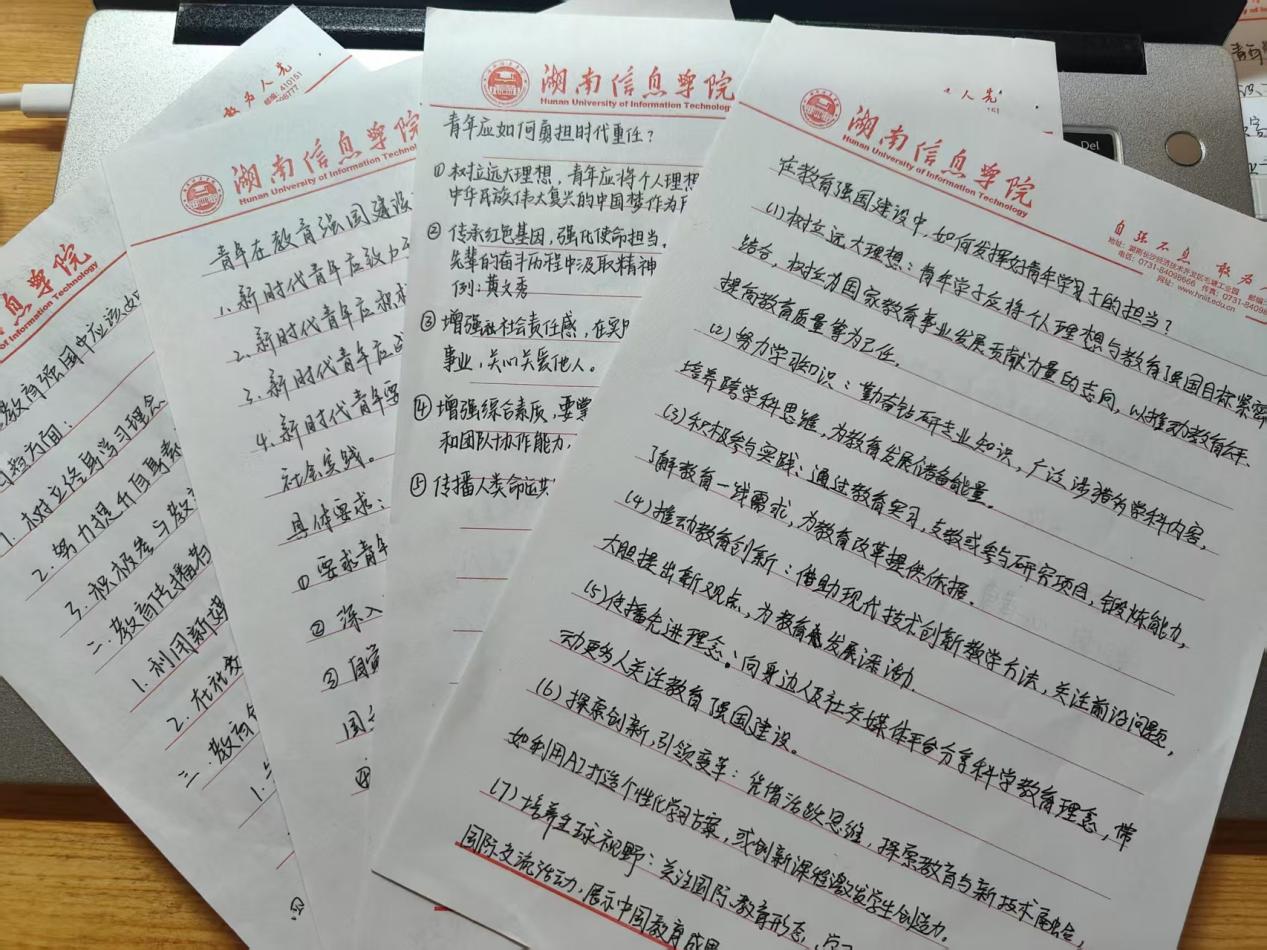 教育强国中应该
担当方面:
1. 树立终身学习理念
2. 努力提升自身素
3. 积极参与教
二、教育传播
1. 利用新媒
2. 在社教
三、教育
1.
人先
邮编: 410151
湖南信息学院
Hunan University of Information Technology
青年在教育强国建设
1. 新时代青年应致力于
2. 新时代青年应积极
3. 新时代青年应
4. 新时代青年要
社会实践。
具体要求:
① 要求青年
② 深入
③
④
湖南信息学院
Hunan University of Information Technology
青年应如何勇担时代重任?
① 树立远大理想, 青年应将个人理想
中华民族伟大复兴的中国梦作为
② 传承红色基因, 强化使命担当,
先辈的奋斗历程中汲取精神
例: 黄文秀
③ 增强社会责任感, 在实
事业, 关心关爱他人。
④ 增强综合素质, 要掌
和团队协作能力,
⑤ 传播人类命运共
人先
湖南信息学院
Hunan University of Information Technology
自强不息 敢为
地址: 湖南长沙经济技术开发区毛塘工业园 邮编
电话: 0731-84098666 传真: 0731-8409
网址: www.hniit.edu.cn
在教育强国建设中, 如何发挥好青年学习于的担当?
(1) 树立远大理想: 青年学子应将个人理想与教育强国目标紧密
结合, 树立为国家教育事业发展贡献力量的志向, 以推动教育公平、
提高教育质量等为己任。
(2) 努力学习知识: 勤奋钻研专业知识, 广泛涉猎多学科内容,
培养跨学科思维, 为教育发展储备能量。
(3) 积极参与实践: 通过教育实习, 支教或参与研究项目, 锻炼能力,
了解教育一线需求, 为教育改革提供依据。
(4) 推动教育创新: 借助现代技术创新教学方法, 关注前沿问题,
大胆提出新观点, 为教育发展添活力.
(5) 传播先进理念: 向身边人及社交媒体平台分享科学教育理念, 带
动更多人关注教育强国建设。
(6) 探索创新, 引领变革: 凭借活跃思维, 探索教育与新技术融合,
如利用AI打造个性化学习方案, 或创新课程激发学生创造力。
(7) 培养全球视野: 关注国际教育形态, 学习
国际交流活动, 展示中国教育成果
Del